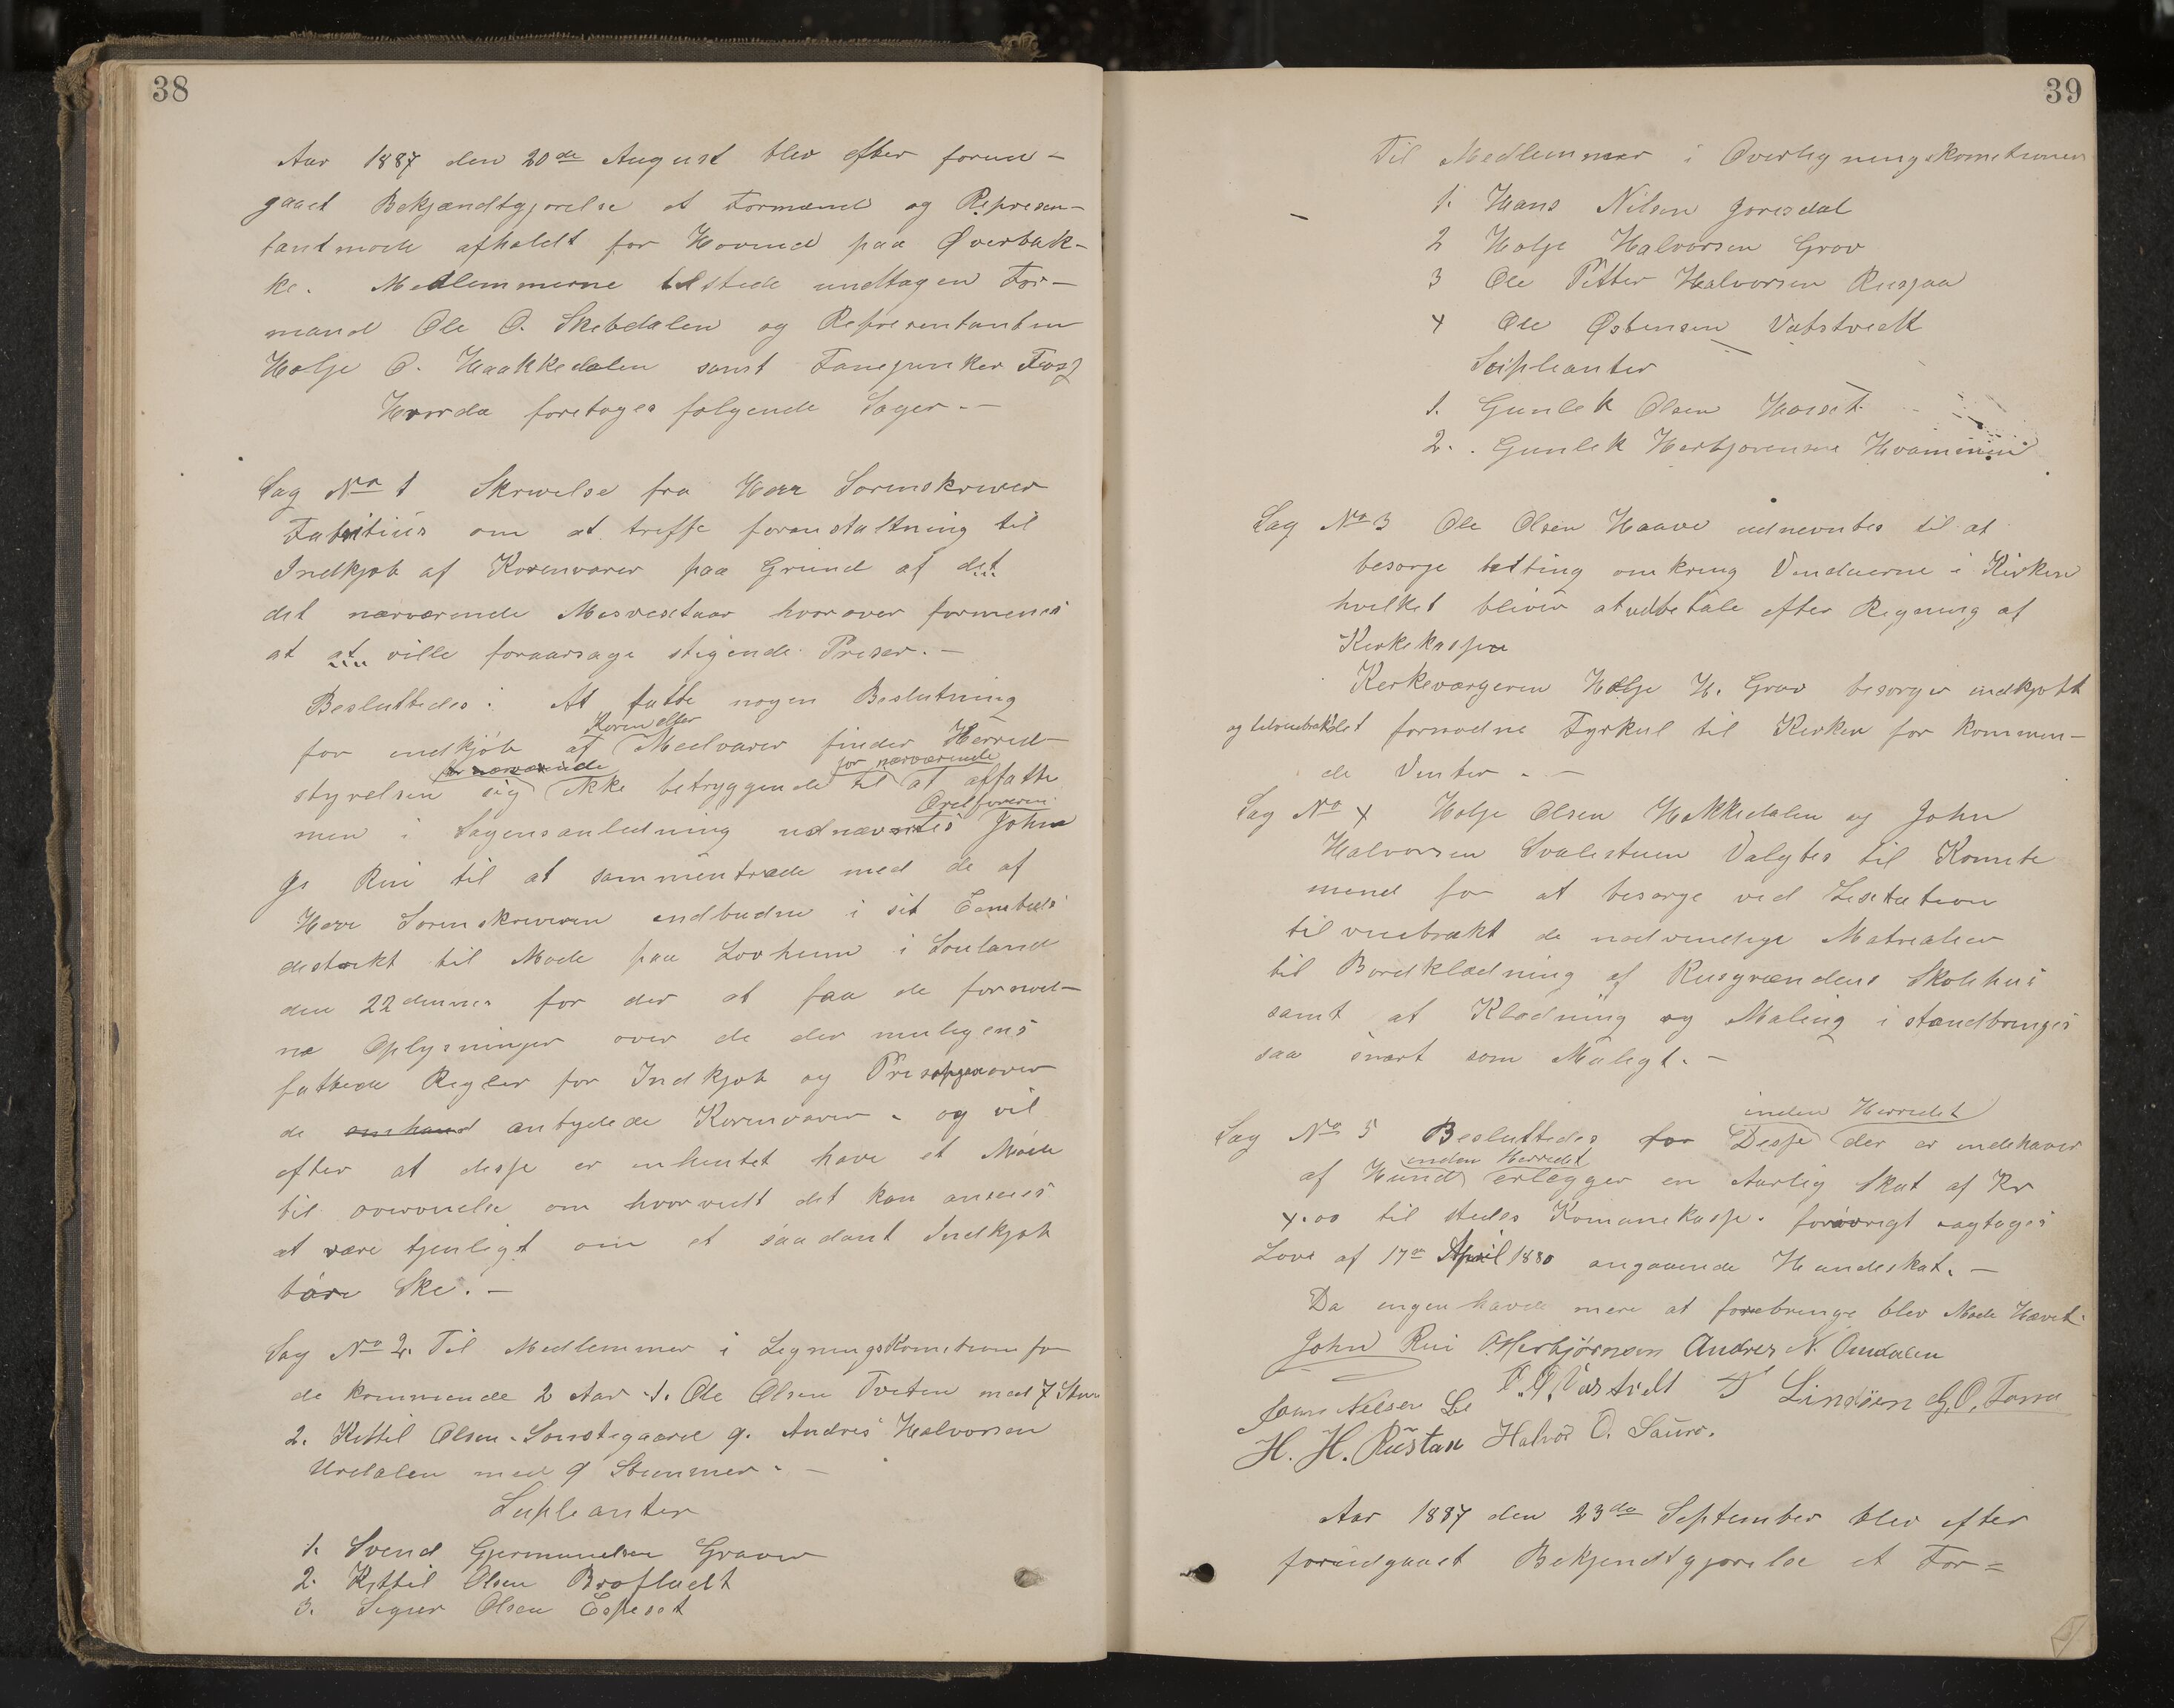 38
Aar 1887 den 20de August blev efter forun-
gaaet Bekjændtgjørelse et Formænd og Represen-
tantmøde afholdt for Hovind paa Øverbak-
ke. Medlemmerne tilstede undtagen For-
mand Ole O. Skebdalen og Representanten
Holje O. Haakkedalen samt Fanejunker Foss
Hvorda foretoges følgende Sager.-
Sag No 1 Skrivelse fra Herr Sorenskriver
om at treffe foranstaltning til
Indkjøb af Kornvarer paa Grund af det
det nærværende Misvextaar hvorover formenes
at at ville foraarsage stigende Priser.-
Besluttedes: At fatte nogen Beslutning
Koren eller
for indkjøb af Meelvarer finder Herred-
for nærværende for nærværende
styrelsen sig ikke betryggende til at affatte
Ordføreren
men i Sagensanledning udnævntes John
Gs Rui til at sammentræde med de af
Herr Sorenskriveren indbudne i sit Embeds
destrikt til Møde paa Lovheim i Souland
den 22 dennes for der at faa de fornød-
ne Oplysninger over de der muligens
fattede Regler for Indkjøb og Prisopgave over
de antydede Kornvarer. og vil
efter at disse er inhentet have et Møde
til overveielse om hvorvidt det kan ansees
at være tjenligt om et saadant Indkjøb
børe Ske.-
Sag No 2. Til Medlemmer i Legningskometionen for
de kommende 2 Aar 1. Ole Olsen Tveten med 7 Stm
2. Kittil Olsen Sønstegaard 9. Andres Halvorsen
Urdalen med 9 Stemmer.-
Supleanter
1. Svend Gjermundsen Graver
2. Kittil Olsen Brofladt
3. Sigur Olsen Espeset
39
Til Medlemmer i Overlegningskometionen
1. Hans Nilsen Joresdal
2 Holje Halvorsen Grov
3 Ole Petter Halvorsen Rusgaa
4 Ole Østensen Vatstvedt
Suipleanter
1. Gunlek Olsen Hovset
2. Gunlek Herbjørensen Hvammen
Sag No 3 Ole Olsen Haave udnevntes til at
besorge tetting omkring Vinduerne i Kirken
hvilket bliver at udbetale efter Regning af
Kirkekassen
Kerkeværgeren Holje H. Grov besorger indkjøbt
og tilveiebrakt det fornødne Fyrkul til Kirken for kommen-
de Vinter.-
Sag No 4 Holje Olsen Hakkedalen og John
Halvorsen Svalestuen Valgtes til Komite
mend for at besorge ved Lisitation
tilveiebrakt de nødvendige Matrealier
til Bordklædning af Rusgrændens Skolehus
samt at Klædning og Maling i standbringes
saa snart som Muligt.-
inden Herredet
Sag No 5 Besluttedes for Disse der er indehaver
inden Herredet
af Hund erlegger en Aarlig Skat af Kr
4.00 til stedes Komunekasse. forøvrigt iagtages
Love af 17de April 1880 angaaende Hundeskat.-
Da ingen havde mere at forebringe blev Møde Hævet.
John Rui O. Herbjørnsen Andres N. Omdalen
Jams Nilsen Bø O. Ø. Vatstvedt Lindsien G. O. Forra
H. H. Rustan Halvor O. Sauro.
Aar 1887 den 23de September blev efter
forudgaaet Bekjendtgjørelse et For=